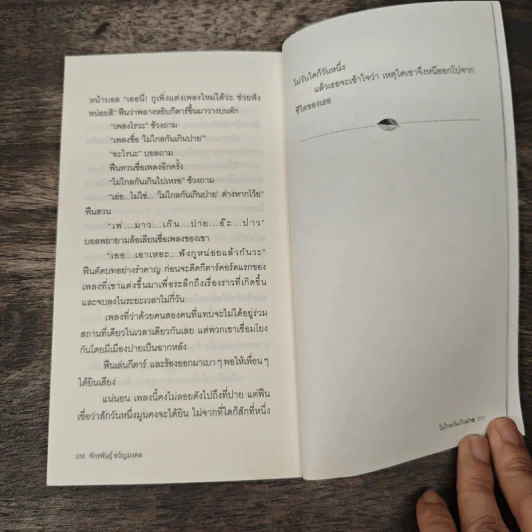 หน้าบอด "เออนี่! กูเพิ่งแต่งเพลงใหม่ได้ว่ะ ช่วยฟัง
หน่อยสิ" ฟืนว่าพลางหยิบกีตาร์ขึ้นมาวางบนตัก
"เพลงไรวะ" ช้วงถาม
"เพลงชื่อ 'ไม่ไกลกันเกินปาย'"
"อะไรนะ" บอลถาม
ฟืนทวนชื่อเพลงอีกครั้ง
"ไม่ไกลกันเกินไปเหรอ" ช้วงถาม
"เย่อ...ไม่ใช่... 'ไม่ไกลกันเกินปาย' ต่างหากโว้ย"
ฟืนสวน
"เพ่...มาว...เก๊น...ปาย...อ๊ะ...ปาว"
บอลพยายามล้อเลียนชื่อเพลงของเขา
"เออ...เอาเหอะ...ฟังกูหน่อยแล้วกันวะ"
ฟืนตัดบทอย่างรำคาญ ก่อนจะดีดกีตาร์คอร์ดแรกของ
เพลงที่เขาแต่งขึ้นมาเพื่อระลึกถึงเรื่องราวที่เกิดขึ้น
และจบลงในระยะเวลาไม่กี่วัน
เพลงที่ว่าด้วยคนสองคนที่แทบจะไม่ได้อยู่ร่วม
สถานที่เดียวในเวลาเดียวกันเลย แต่พวกเขาเชื่อมโยง
กันโดยมีเมืองปายเป็นฉากหลัง
ฟืนเล่นกีตาร์ และร้องออกมาเบา ๆ พอให้เพื่อน ๆ
ได้ยินเสียง
แน่นอน เพลงนี้คงไม่ลอยดังไปถึงที่ปาย แต่ฟืน
เชื่อว่าสักวันหนึ่งมุนคงจะได้ยิน ไม่จากที่ใดก็สักที่หนึ่ง
216 จักรพันธุ์ ขวัญมงคล
ไม่วันใดก็วันหนึ่ง
แล้วเธอจะเข้าใจว่า เหตุใดเขาจึงหนีออกไปจาก
ชีวิตของเธอ
ไม่ไกลกันเกินปาย 217